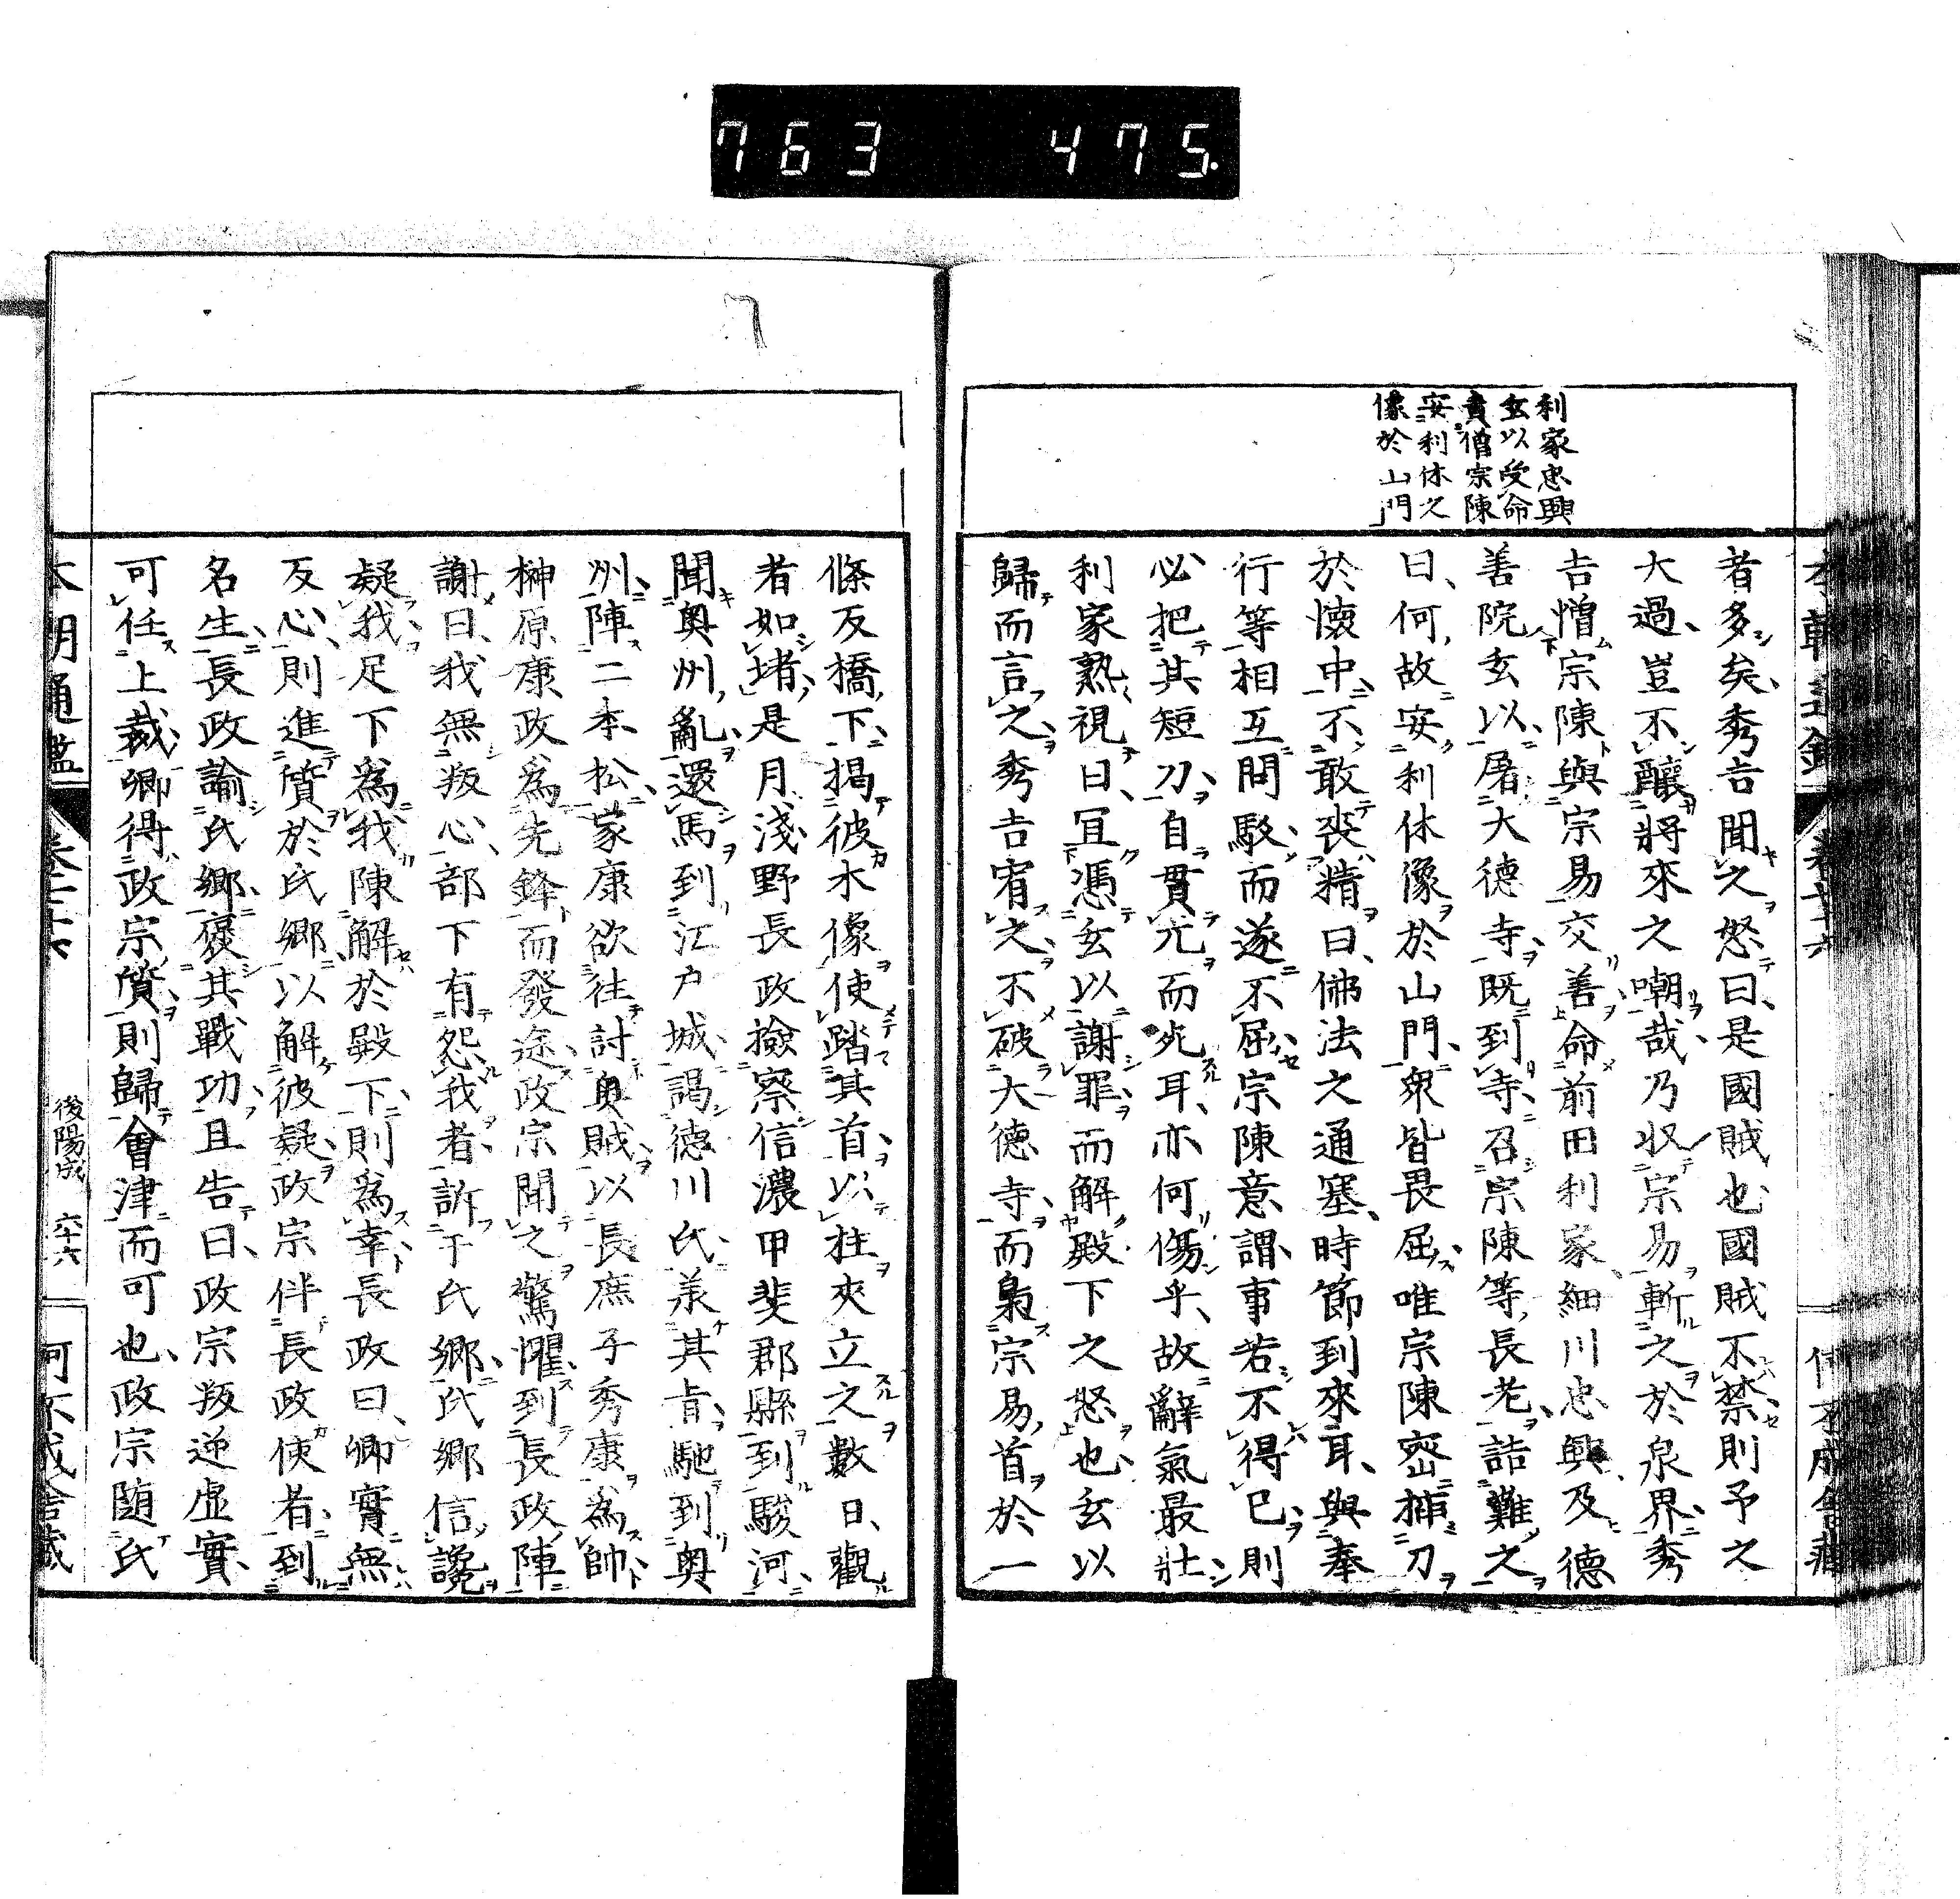 763 475.
利家忠興
玄以受命
責僧宗陳
安利休之
像於山門
者多矣秀吉聞之怒曰是國賊也國賊不禁則予之
大過豈不釀將來之嘲哉乃収宗易斬之於泉界秀
吉憎宗陳與宗易交善命前田利家細川忠興及德
善院玄以屠大德寺既到寺召宗陳等長老詰難之
曰何故安利休像於山門衆皆畏屈唯宗陳密插刀
於懷中不敢喪精曰佛法之通塞時節到來耳與奉
行等相互問駁而遂不屈宗陳意謂事若不得已則
必把其短刀自貫亢而死耳亦何傷乎故辭氣最壯
利家熟視曰冝憑玄以謝罪而解殿下之怒也玄以
歸而言之秀吉宥之不破大德寺而梟宗易首於一
條反橋下揭彼木像使踏其首以拄夾立之數日觀
者如堵是月淺野長政撿察信濃甲斐郡縣到駿河
聞奥州亂還馬到江戸城謁德川氏羕其旨馳到奥
州陣二本松家康欲往討奥賊以長庶子秀康為帥
榊原康政爲先鋒而發途政宗聞之驚懼到長政陣
謝曰我無叛心部下有怨我者訴于氏郷氏郷信讒
疑我足下爲我陳解於殿下則爲幸長政曰卿實無
反心則進質於氏郷以解彼疑政宗伴長政使者到
名生長政諭氏郷褒其戰功且告曰政宗叛逆虛實
可任上裁卿得政宗質則歸會津而可也政宗随氏
本朝通鑑
後陽成 六十六